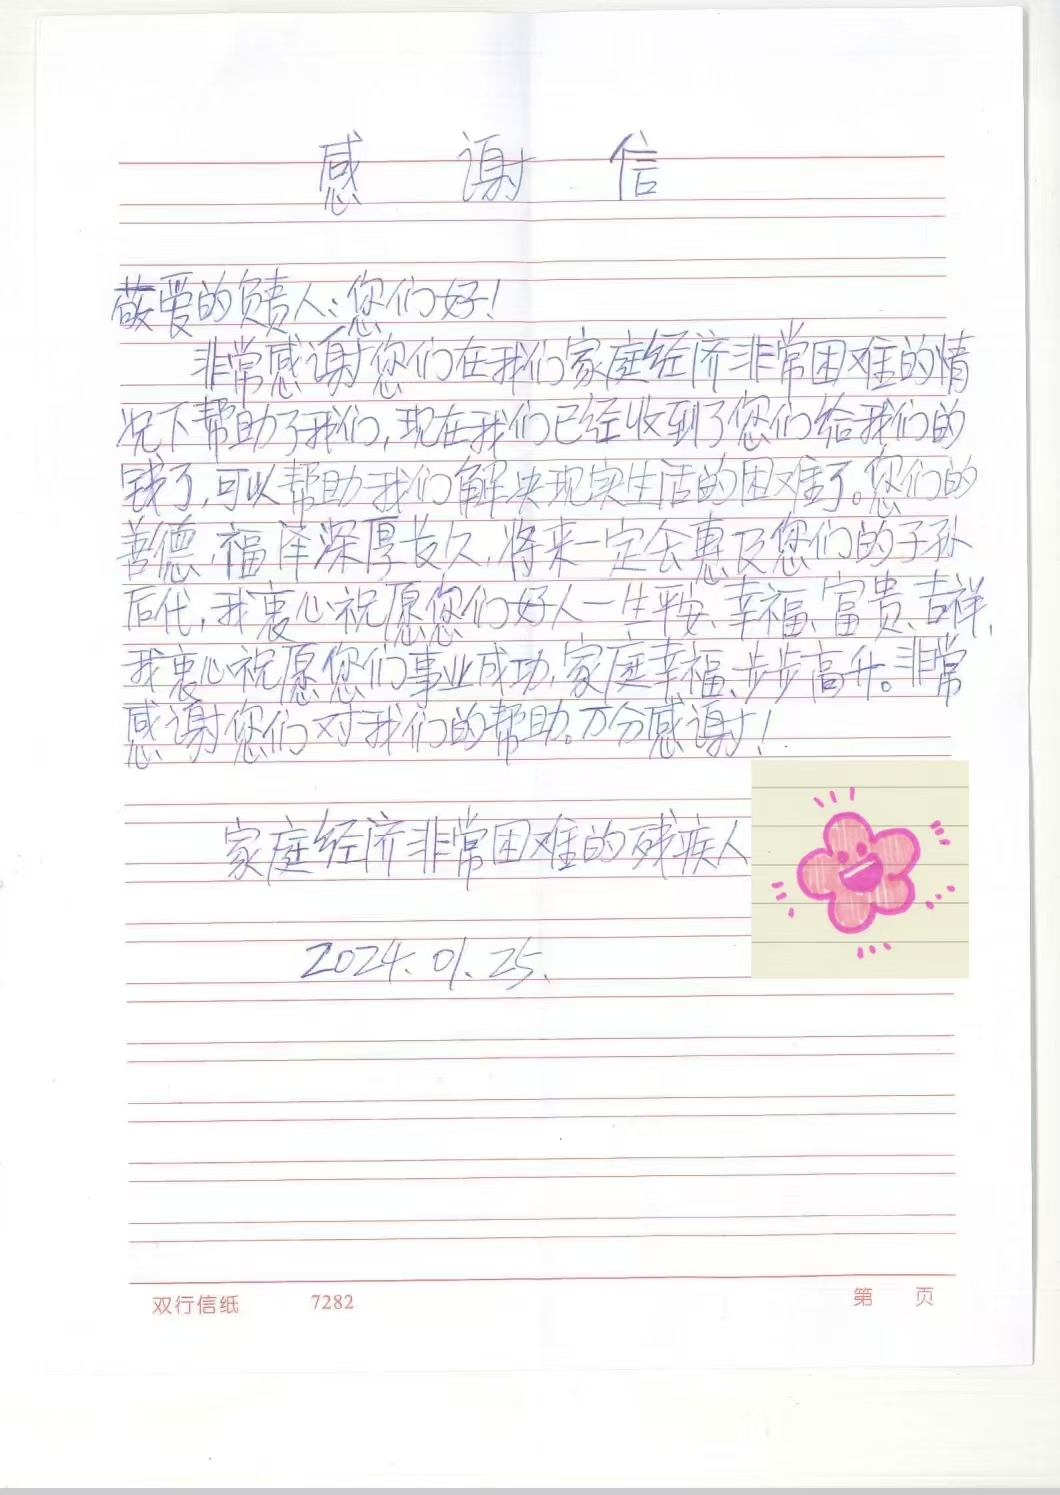 感 谢 信
敬爱的负责人:您们好!
非常感谢您们在我们家庭经济非常困难的情
况下帮助了我们,现在我们已经收到了您们给我们的
钱了,可以帮助我们解决现实生活的困难了。您们的
善德,福泽深厚长久,将来一定会惠及您们的子孙
后代,我衷心祝愿您们好人一生平安、幸福、富贵、吉祥,
我衷心祝愿您们事业成功、家庭幸福、步步高升。非常
感谢您们对我们的帮助。万分感谢!
家庭经济非常困难的残疾人
2024.01.25.
双行信纸 7282 第 页